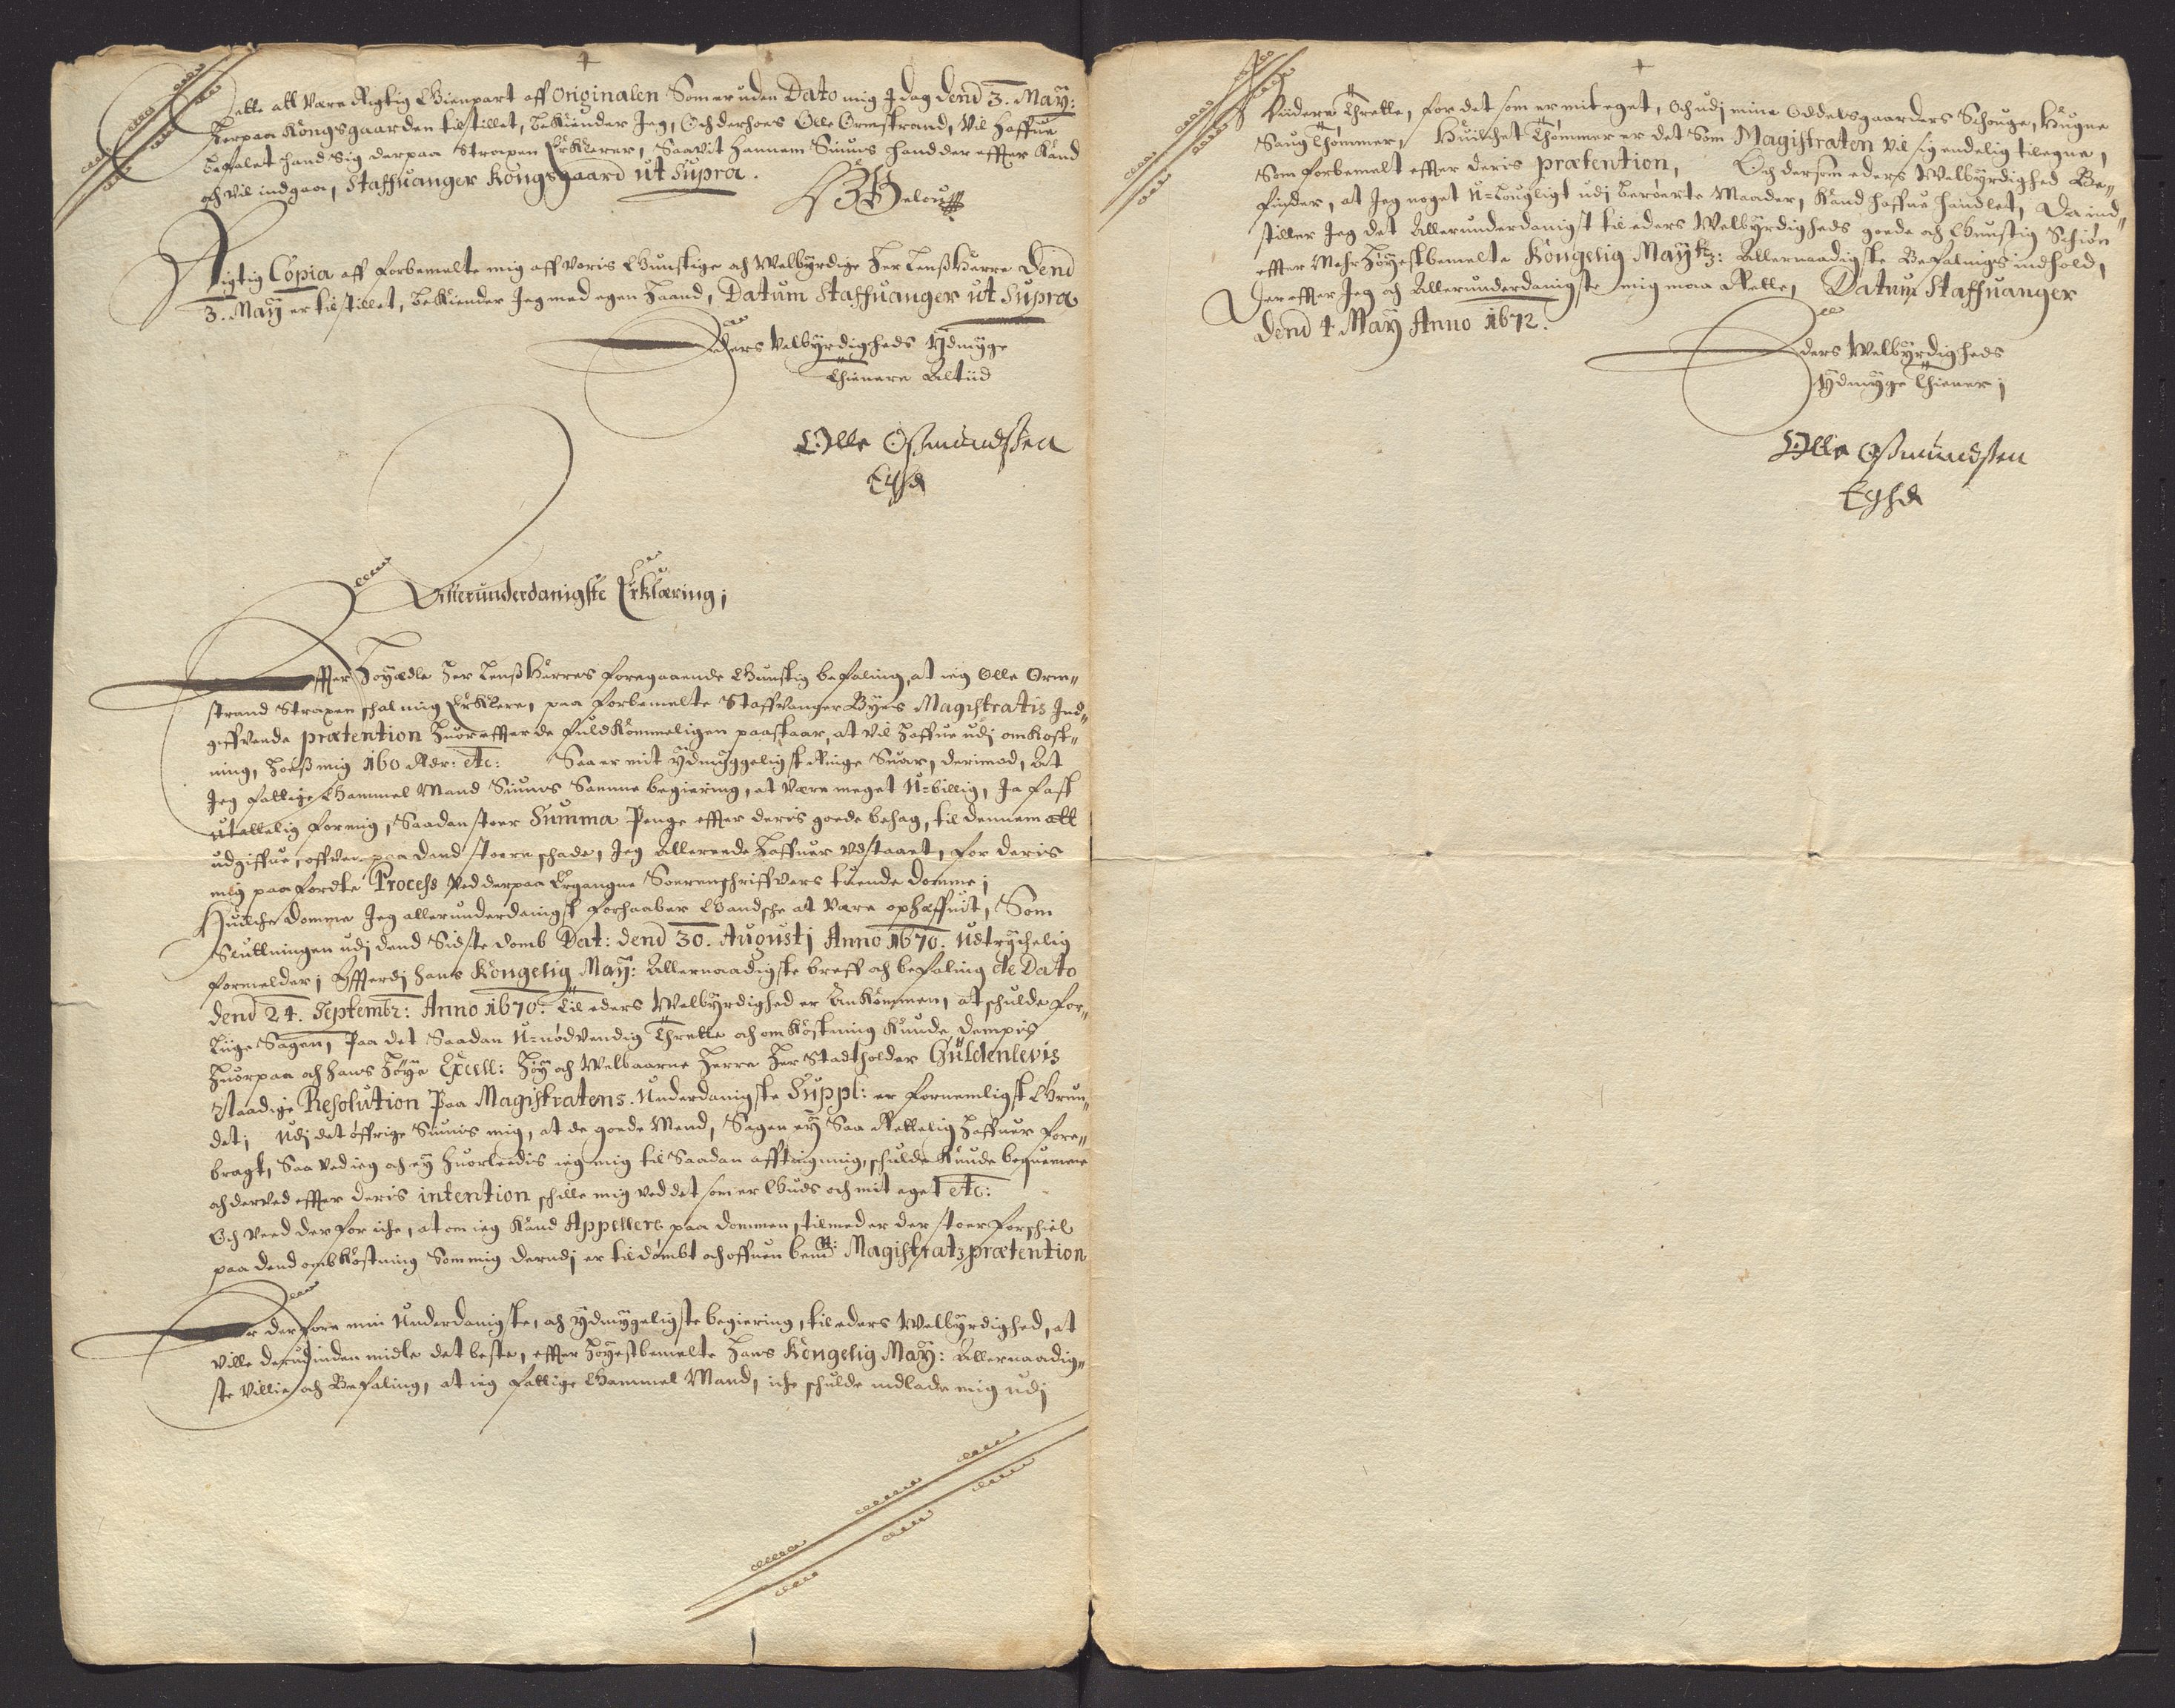 Dette att være Rigtig Gienpart aff Originalen Som er uden Dato mig J dag dend 3. Maÿ:
herpaa Kongsgaarden tilstillet, bekiender Jeg, Och derhoes Olle Ormstrand, Vil haffue
befalet hand Sig derpaa Straxen Erklerer, Saavit hannem Siunis hand der effter Kand
och vil indgaa, Staffuanger Kongsgaard ut Supra.
Rigtig Copia aff forbemelte mig aff voris Gunstige och Welbyrdige Her Lenßherre Dend
3. Maÿ er tilstillet, bekiender Jeg med egen Haand, Datum Staffuanger ut Supra
Eders Velbÿrdigheds Ydmyge
Thienere Altiid
Olle Oßmundsen
Eghd
Allerunderdanigste Erklæring;
Effter Höyædle Her Lenßherres foregaaende Gunstig befaling, at ieg Olle Orm-
strand Straxen schal mig Erklere, paa forbemelte Staffvanger Byes Magistratis Ind-
giffvende prætention Huoreffter de fuldkommeligen paastaar, at vil haffue udj omkost-
ning, hoeß mig 160 Rdr: etc: Saa er mit ydmyggeligst Ringe Suar, derimod, At
Jeg fattige Gammel Mand Siunes Samme begiering, at være meget U-billig, Ja fast
utallelig for mig, Saadan stoer Summa Penge effter deris goede behag, til dennem att
udgiffue, offver paa dend stoere schade, Jeg Allerede haffuer udstaaet, for deris
mig paaførdte Process Ved derpaa Ergangne Sorenschriffvers tuende domme;
Huilche domme Jeg allerunderdanigst forhaaber Gandsche at være ophæffuit, Som
Sluttningen udj dend Sidste domb Dat: dend 30. Augustj Anno 1670. Udtrychelig
formelder; Effterdj hans Kongelig Maÿ: Allernaadigste breff och befaling de Dato
dend 24. Septembr: Anno 1670. Til eders Welbyrdighed er Ankommen, at schulde for-
liige Sagen, Paa det Saadan U-nødvendig Thrette och omkostning Kunde dempis
Huorpaa och hans Høye Excell: Høy och Welbaarne Herre Her Stadtholder Güldenlevis
Naadige Resolution Paa Magistratens Underdanigste Suppl: er fornemligst Grun-
det; Udj det öffrige Siunis mig, at de goede Mend, Sagen ey Saa Rettelig haffuer fore-
bragt, Saa ved ieg och ey huorledis ieg mig til Saadan afftrignig, schulde Kunde bequemme
och derved effter deris intention schille mig ved det som er Guds och mit eget etc:
Och veed der for iche, at om ieg Kand Appellere paa dommen, tilmed er der stoer forschiel
paa dend ombkostning Som mig derudj er tildømbt och offuen bemte: Magistratz prætention
Er derfore min Underdanigste, och ydmygeligste begiering, til eders Welbyrdighed, at
ville derudinden midle det beste, effter höyestbemelte Hans Kongelig Maÿ: Allernaadig-
ste Villie och Befaling, at ieg fattige Gammel Mand, iche schulde indlade mig udj
Viidere Thrette, for det som er mit eget, Och udj mine Oddelsgaarders Schouge, Hugne
Saug Thømmer, Huilchet Thømmer er det Som Magistraten vil sig endelig tilegne,
Som forbemelt effter deris prætention, Och dersom eders Welbyrdighed Be-
finder, at Jeg noget U-Lougligt udj berørte Maader, Kand haffue handlet, Da ind-
stiller Jeg det Allerunderdanigst til eders Welbyrdigheds goede och Gunstig Schiøn
effter Mehr Höyestbemelte Kongelig Maÿtz: Allernaadigste Befalings indhold,
Der effter Jeg och Allerunderdanigste mig maa Rette, Datum Staffuanger
Dend 4 Maÿ Anno 1672.
Eders Welbÿrdigheds
Ydmyge Thiener;
Olle Oßmundsen
Eghd